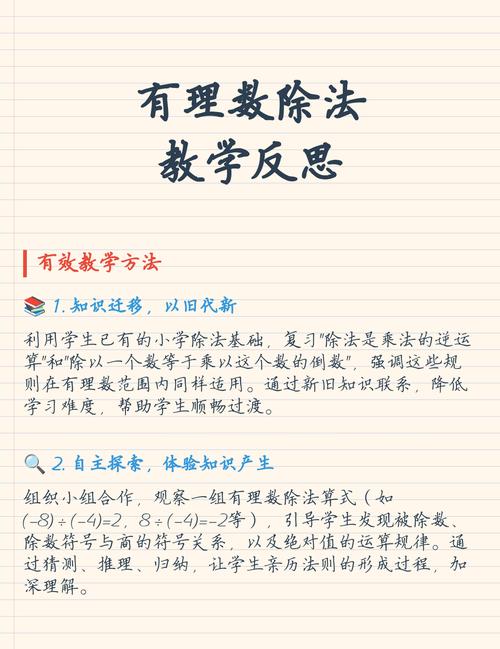 有理数除法
教学反思
有效教学方法
📚 1. 知识迁移，以旧代新
利用学生已有的小学除法基础，复习"除法是乘法的逆运
算"和"除以一个数等于乘以这个数的倒数"，强调这些规
则在有理数范围内同样适用。通过新旧知识联系，降低
学习难度，帮助学生顺畅过渡。
🔍 2. 自主探索，体验知识产生
组织小组合作，观察一组有理数除法算式（如
(-8)÷(-4)=2，8÷(-4)=-2等），引导学生发现被除数、
除数符号与商的符号关系，以及绝对值的运算规律。通
过猜测、推理、归纳，让学生亲历法则的形成过程，加
深理解。